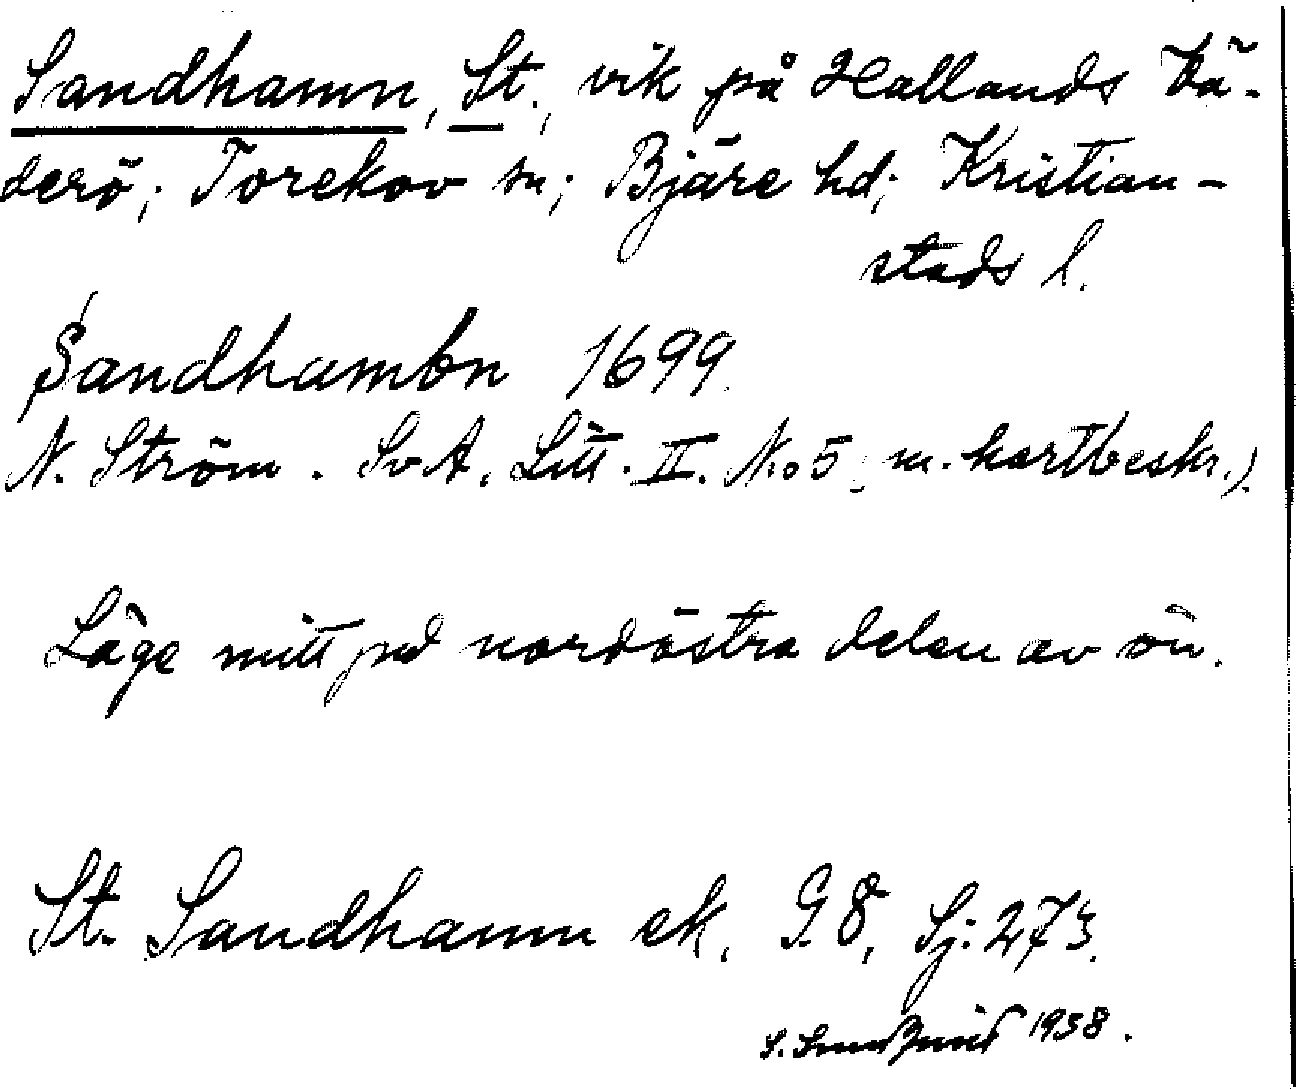 Sandhamn, St., vik på Hallands Vä-
derö; Torekov sn; Bjäre hd; Kristian-
stads l.
Sandhambn 1699.
N. Ström. SvA. Litt. II. No 5; m. kartbeskr.).
Läge mitt på nordöstra delen av ön.
St. Sandhamn ek. G8, Sj: 273.
S. 1938.